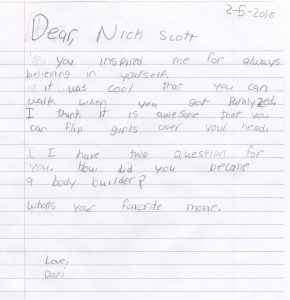 2-5-2018
Dear, Nick Scott
you inspired me for always
believing in yourself.
it was cool that you can
walk when you got Paralyzed.
I think it is awesome that you
can flip girls over your head.
I have two question for
you. How did you become
a body builder?
Whats your favorite movie.
Love,